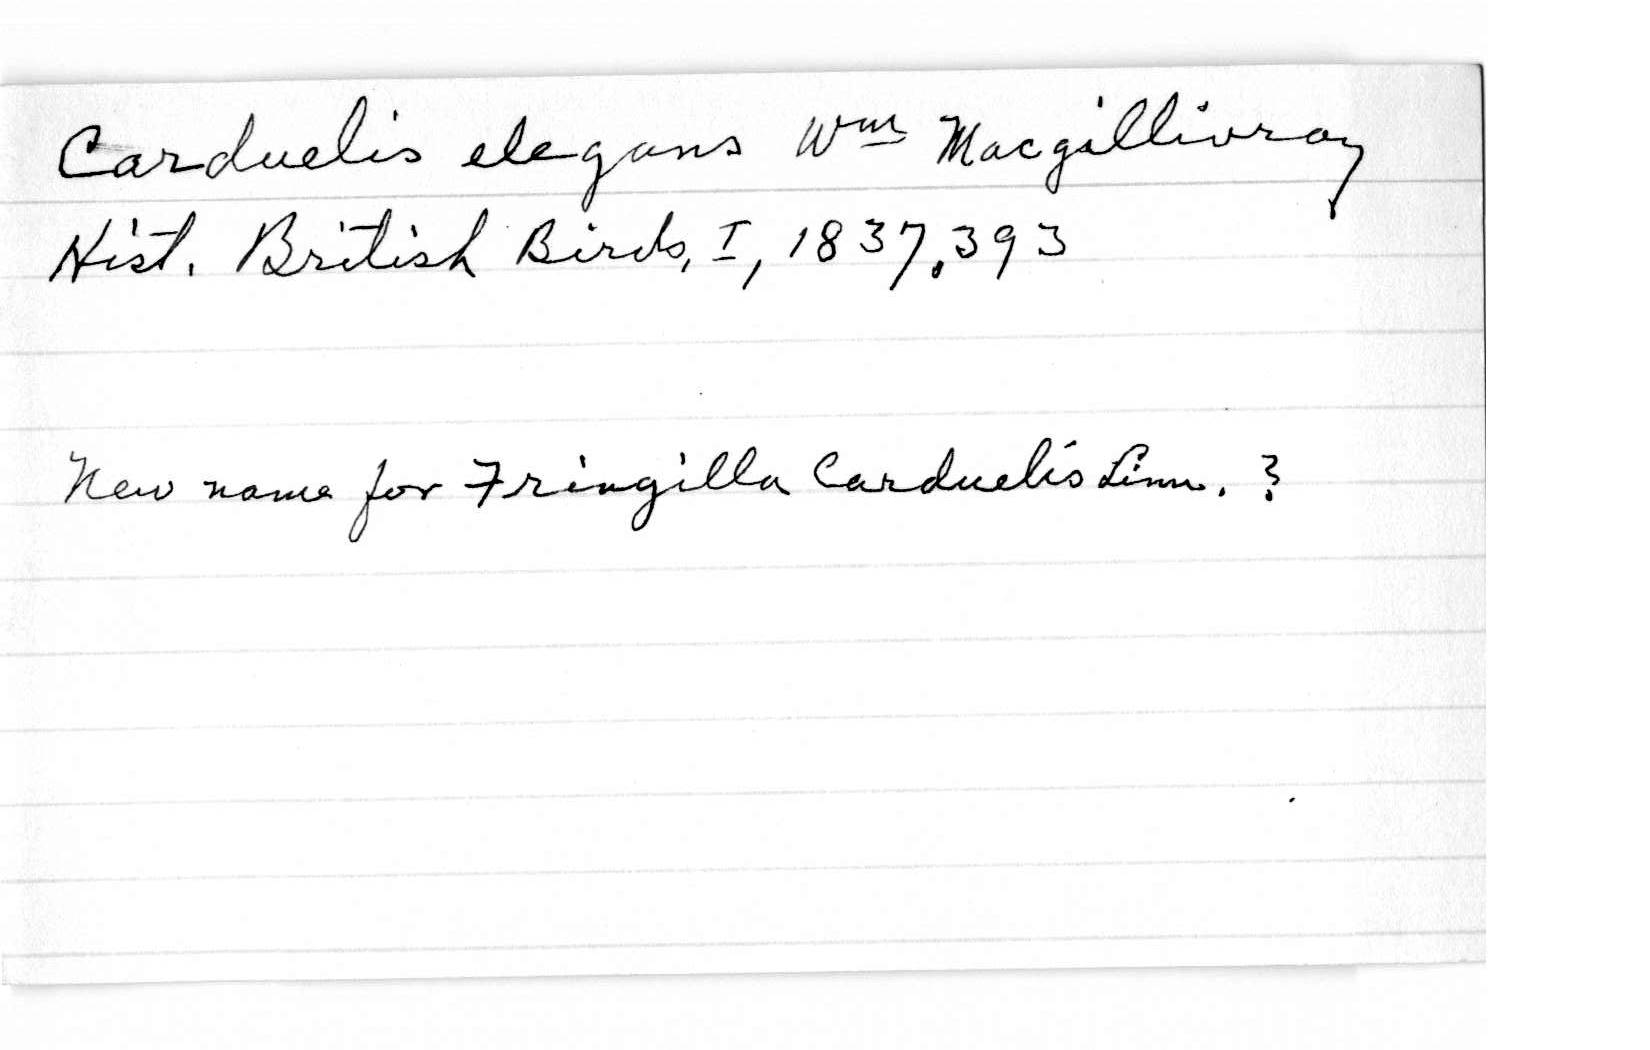 Carduelis elegans Wm Macgillivray
Hist. British Birds, I, 1837, 393
New name for Fringilla Carduelis Linn. ?